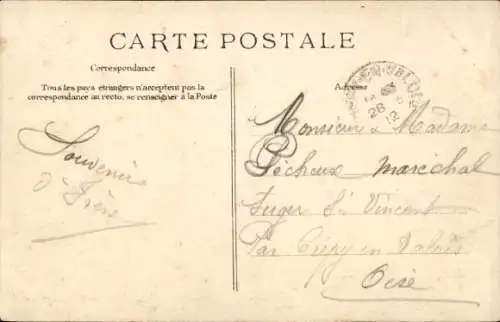 CARTE POSTALE
Correspondance
Tous les pays étrangers n'acceptent pas la
correspondance au recto, se renseigner à la Poste
Souvenirs
d'
Adresse
28
12
Monsieur & Madame
Pécheux Maréchal
Auger St Vincent
Par Crépy en Valois
Oise